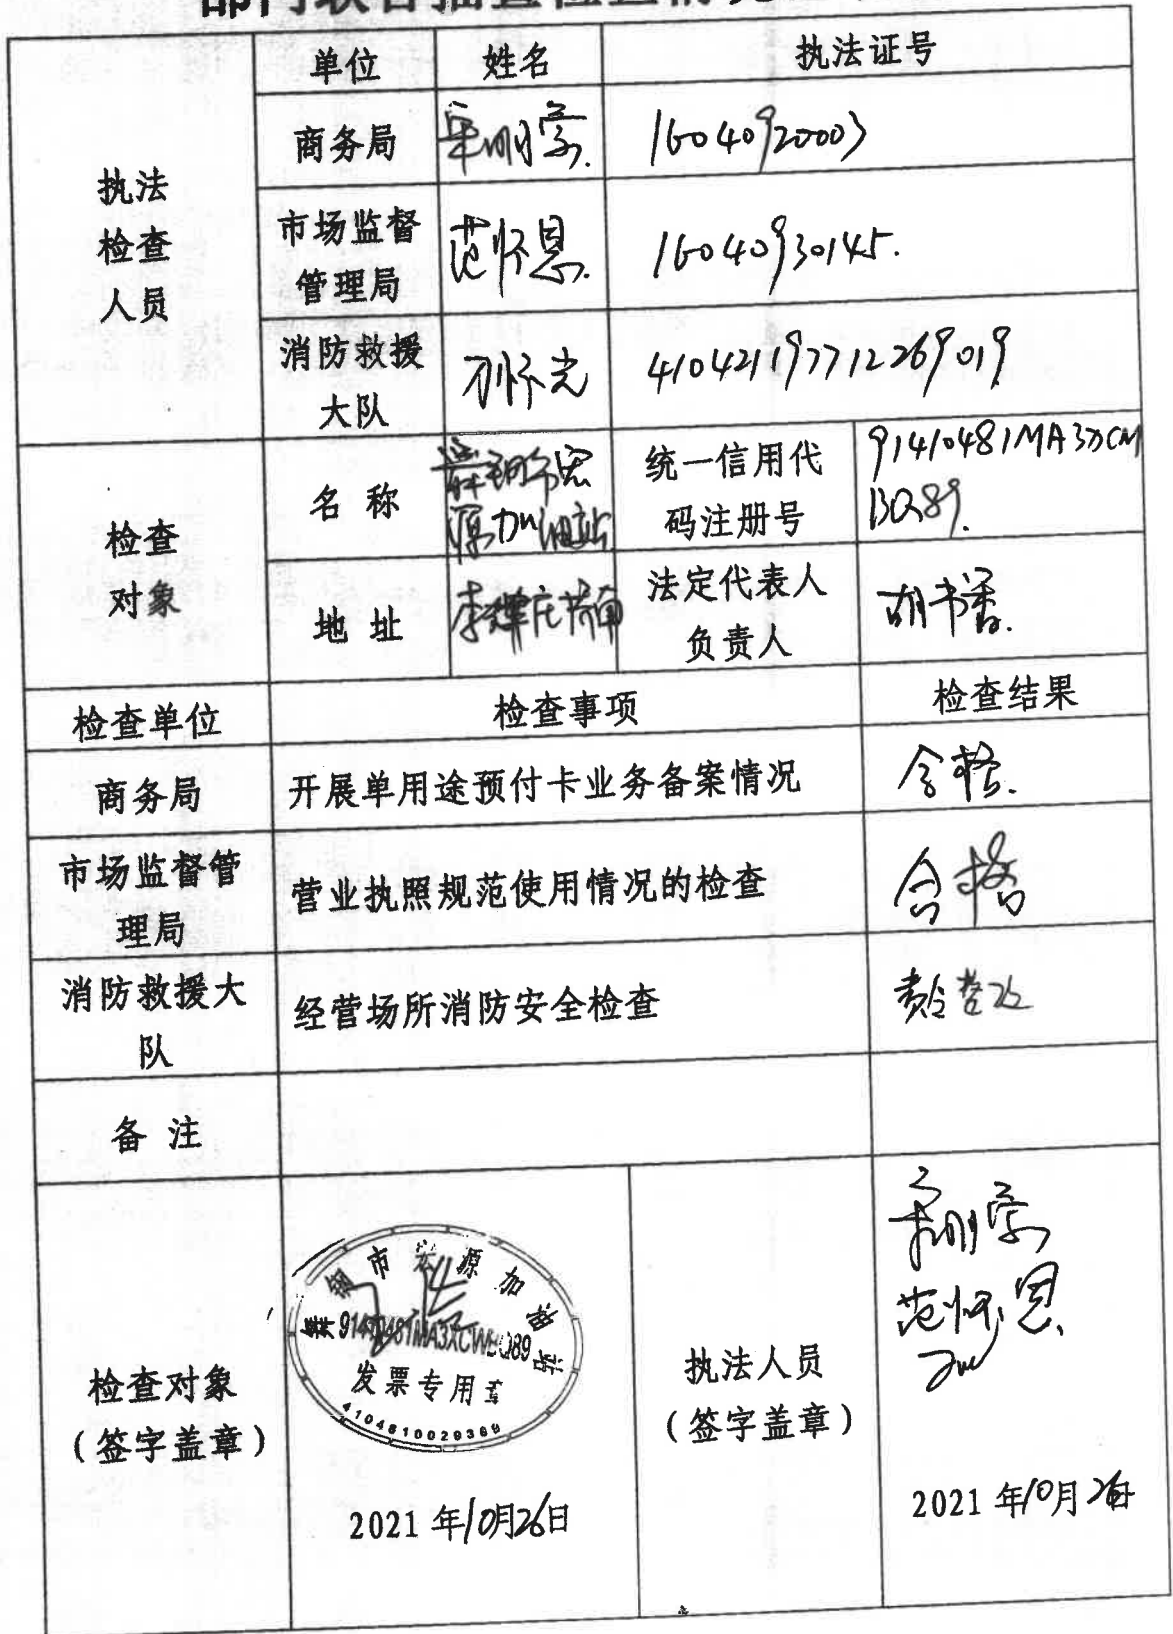 部门联合抽查检查情况
单位 姓名 执法证号
执法
检查
人员
商务局 16040920003
市场监督
管理局
范怀恩. 16040930145.
消防救援
大队
刁怀光 410421197712269019
检查
对象
名 称
舞钢市宏
源加油站
统一信用代
码注册号
91410481MA3XCM
BQ89.
地 址 李辉庄街南
法定代表人
负责人
胡书香.
检查单位 检查事项 检查结果
商务局 开展单用途预付卡业务备案情况 合格.
市场监督管
理局
营业执照规范使用情况的检查 合格
消防救援大
队
经营场所消防安全检查 责令整改
备 注
检查对象
(签字盖章)
舞钢市宏源加油站
发票专用章
2021 年10月26日
执法人员
(签字盖章)
范怀恩
2021 年10月26日